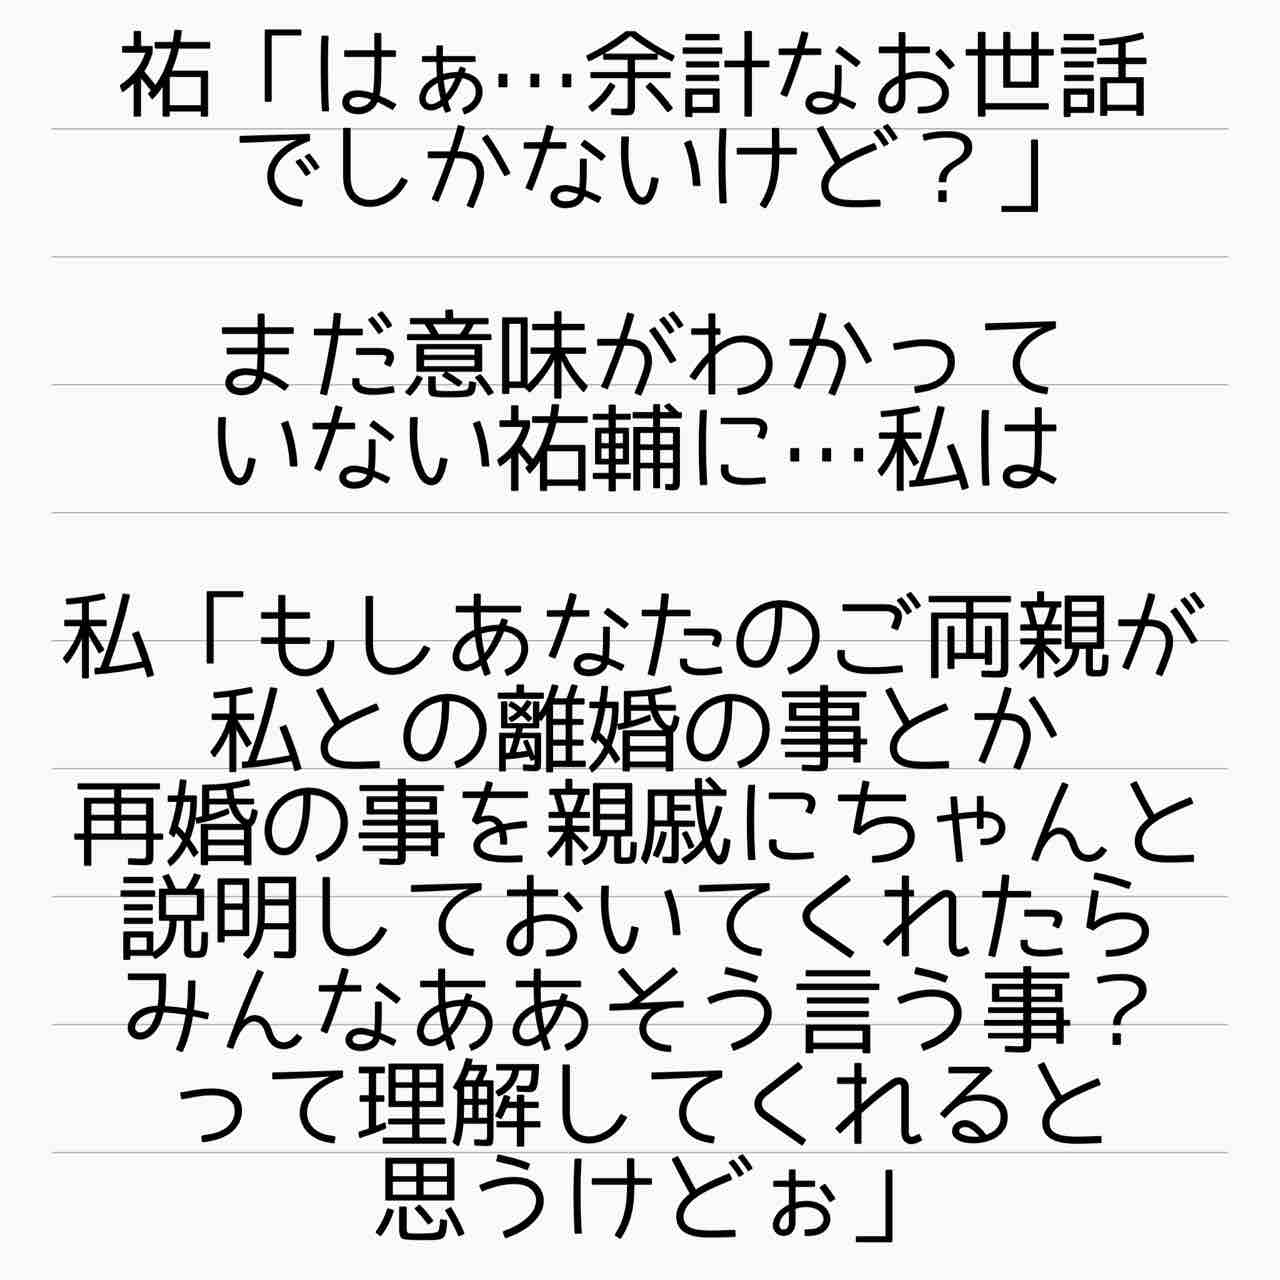 祐「はぁ…余計なお世話
でしかないけど？」
まだ意味がわかって
いない祐輔に…私は
私「もしあなたのご両親が
私との離婚の事とか
再婚の事を親戚にちゃんと
説明しておいてくれたら
みんなああそう言う事？
って理解してくれると
思うけどぉ」